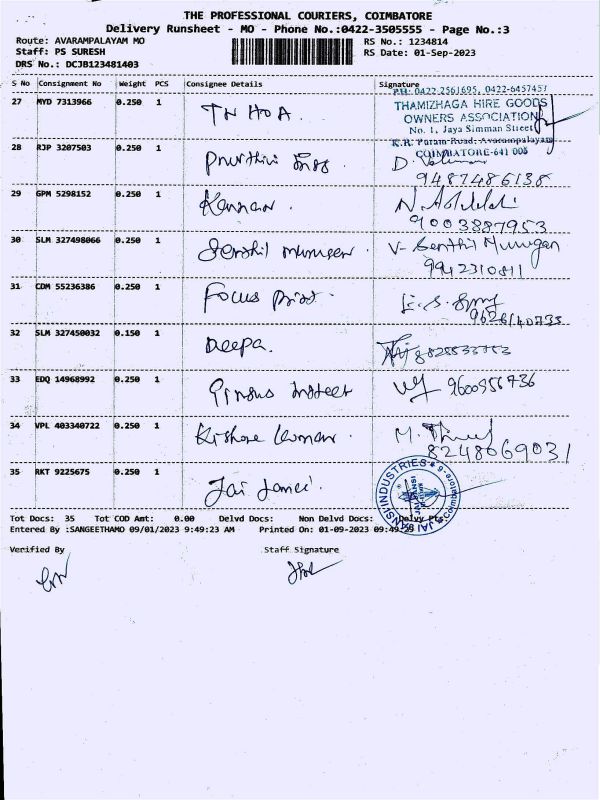 THE PROFESSIONAL COURIERS, COIMBATORE
Delivery Runsheet - MO - Phone No.:0422-3505555 - Page No.:3
Route: AVARAMPALAYAM MO RS No.: 1234814
Staff: PS SURESH RS Date: 01-Sep-2023
DRS No.: DCJB123481403
S No Consignment No Weight PCS Consignee Details Signature
PH: 0422-2561695, 0422-6457457
27 MYD 7313966 0.250 1 TN HOA
THAMIZHAGA HIRE GOODS
OWNERS ASSOCIATION
No. 1, Jaya Simman Street
K.R. Puram Road, Avarampalayam
COIMBATORE-641 006
28 RJP 3207503 0.250 1 D.
9487486138
29 GPM 5298152 0.250 1 Kannan
9003887953
30 SLM 327498066 0.250 1 Senthil Murugan V. Senthil Murugan
9942310811
31 CDM 55236386 0.250 1 Focus Print
9626140735
32 SLM 327450032 0.150 1 Deepa. 8825533753
33 EDQ 14968992 0.250 1 9600956736
34 VPL 403340722 0.250 1 Kishore Kumar M.
8248069031
35 RKT 9225675 0.250 1 Jai
INDUSTRIES
Tot Docs: 35 Tot COD Amt: 0.00 Delvd Docs: Non Delvd Docs:
Entered By :SANGEETHAMO 09/01/2023 9:49:23 AM Printed On: 01-09-2023 09:49
Verified By Staff Signature